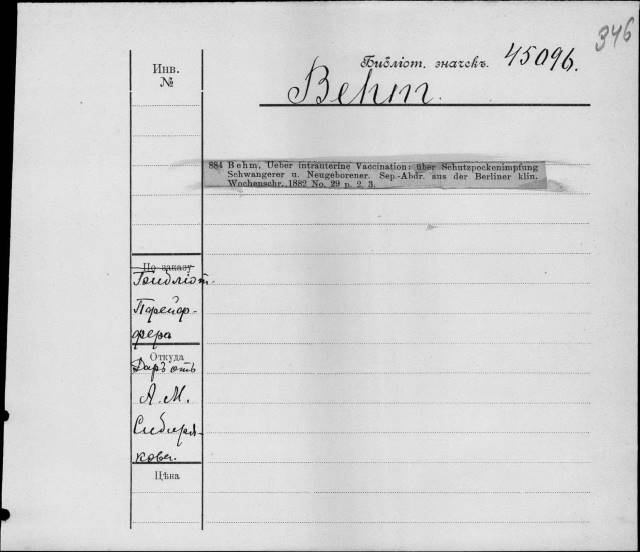 346
Инв. №
Библіот. значекъ. 45096.
Behm.
884 Behm. Ueber intrauterine Vaccination: über Schutzpockenimpfung
Schwangerer u. Neugeborener. Sep.-Abdr. aus der Berliner klin.
Wochenschr. 1882 No. 29 p. 2. 3.
По заказу
Библіот.
Пфейф-
фера
Откуда
Даръ отъ
А. М.
Сибиря-
кова.
Цѣна